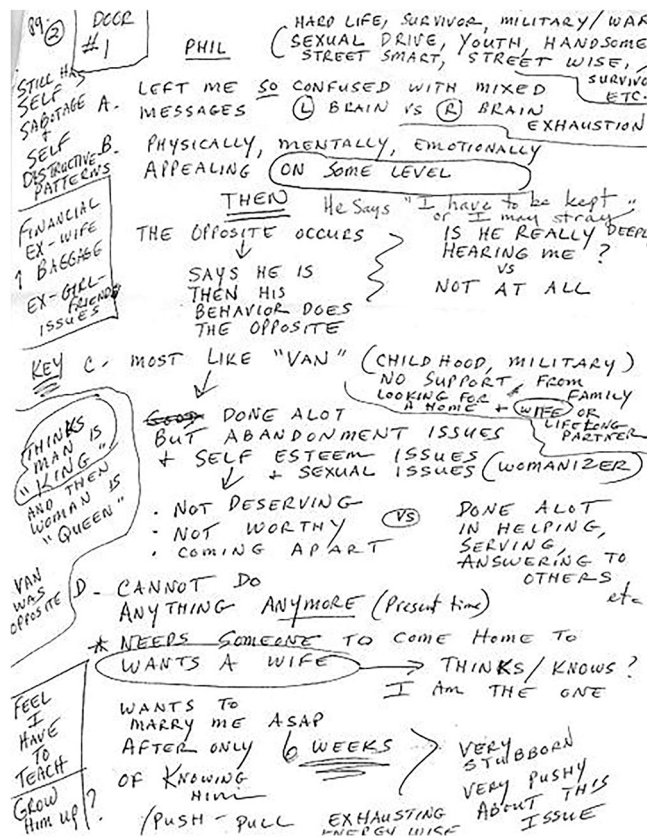 89. ②
DOOR
#1
PHIL
HARD LIFE, SURVIVOR, MILITARY/WAR
SEXUAL DRIVE, YOUTH, HANDSOME
STREET SMART, STREET WISE,
SURVIVO
ETC.
STILL HAS
SELF
SABOTAGE
+
SELF
DISTRUCTIVE
PATTERNS
A. LEFT ME SO CONFUSED WITH MIXED
MESSAGES Ⓛ BRAIN VS Ⓡ BRAIN
EXHAUSTION
B. PHYSICALLY, MENTALLY, EMOTIONALLY
APPEALING ON SOME LEVEL
THEN
He Says "I have to be kept"
or I may stray
FINANCIAL
EX-WIFE
↑ BAGGAGE
EX-GIRL-
FRIENDS
ISSUES
THE OPPOSITE OCCURS
SAYS HE IS
THEN HIS
BEHAVIOR DOES
THE OPPOSITE
IS HE REALLY DEEPL
HEARING ME?
VS
NOT AT ALL
KEY C- MOST LIKE "VAN" (CHILDHOOD, MILITARY)
NO SUPPORT FROM
FAMILY
LOOKING FOR
A HOME + WIFE OR
LIFELONG
PARTNER
GOOD DONE ALOT
BUT ABANDONMENT ISSUES
+ SELF ESTEEM ISSUES
+ SEXUAL ISSUES (WOMANIZER)
THINKS
MAN IS
"KING"
AND THEN
WOMAN IS
"QUEEN"
VAN
WAS
OPPOSITE
· NOT DESERVING
· NOT WORTHY
· COMING APART
VS
DONE ALOT
IN HELPING,
SERVING,
ANSWERING TO
OTHERS
etc
D- CANNOT DO
ANYTHING ANYMORE (Present time)
* NEEDS SOMEONE TO COME HOME TO
WANTS A WIFE → THINKS/KNOWS?
I AM THE ONE
FEEL
I
HAVE
TO
TEACH
GROW
Him up?
WANTS TO
MARRY ME ASAP
AFTER ONLY 6 WEEKS
OF KNOWING
HIM
VERY
STUBBORN
VERY PUSHY
ABOUT THIS
ISSUE
/PUSH-PULL EXHAUSTING
ENERGY WISE